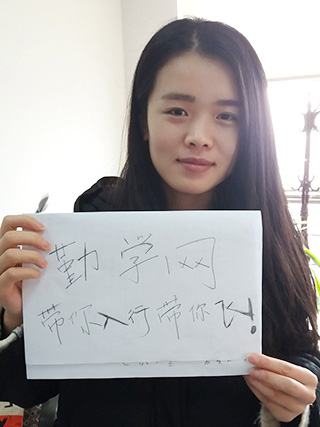 勤学网
带你入行带你飞.